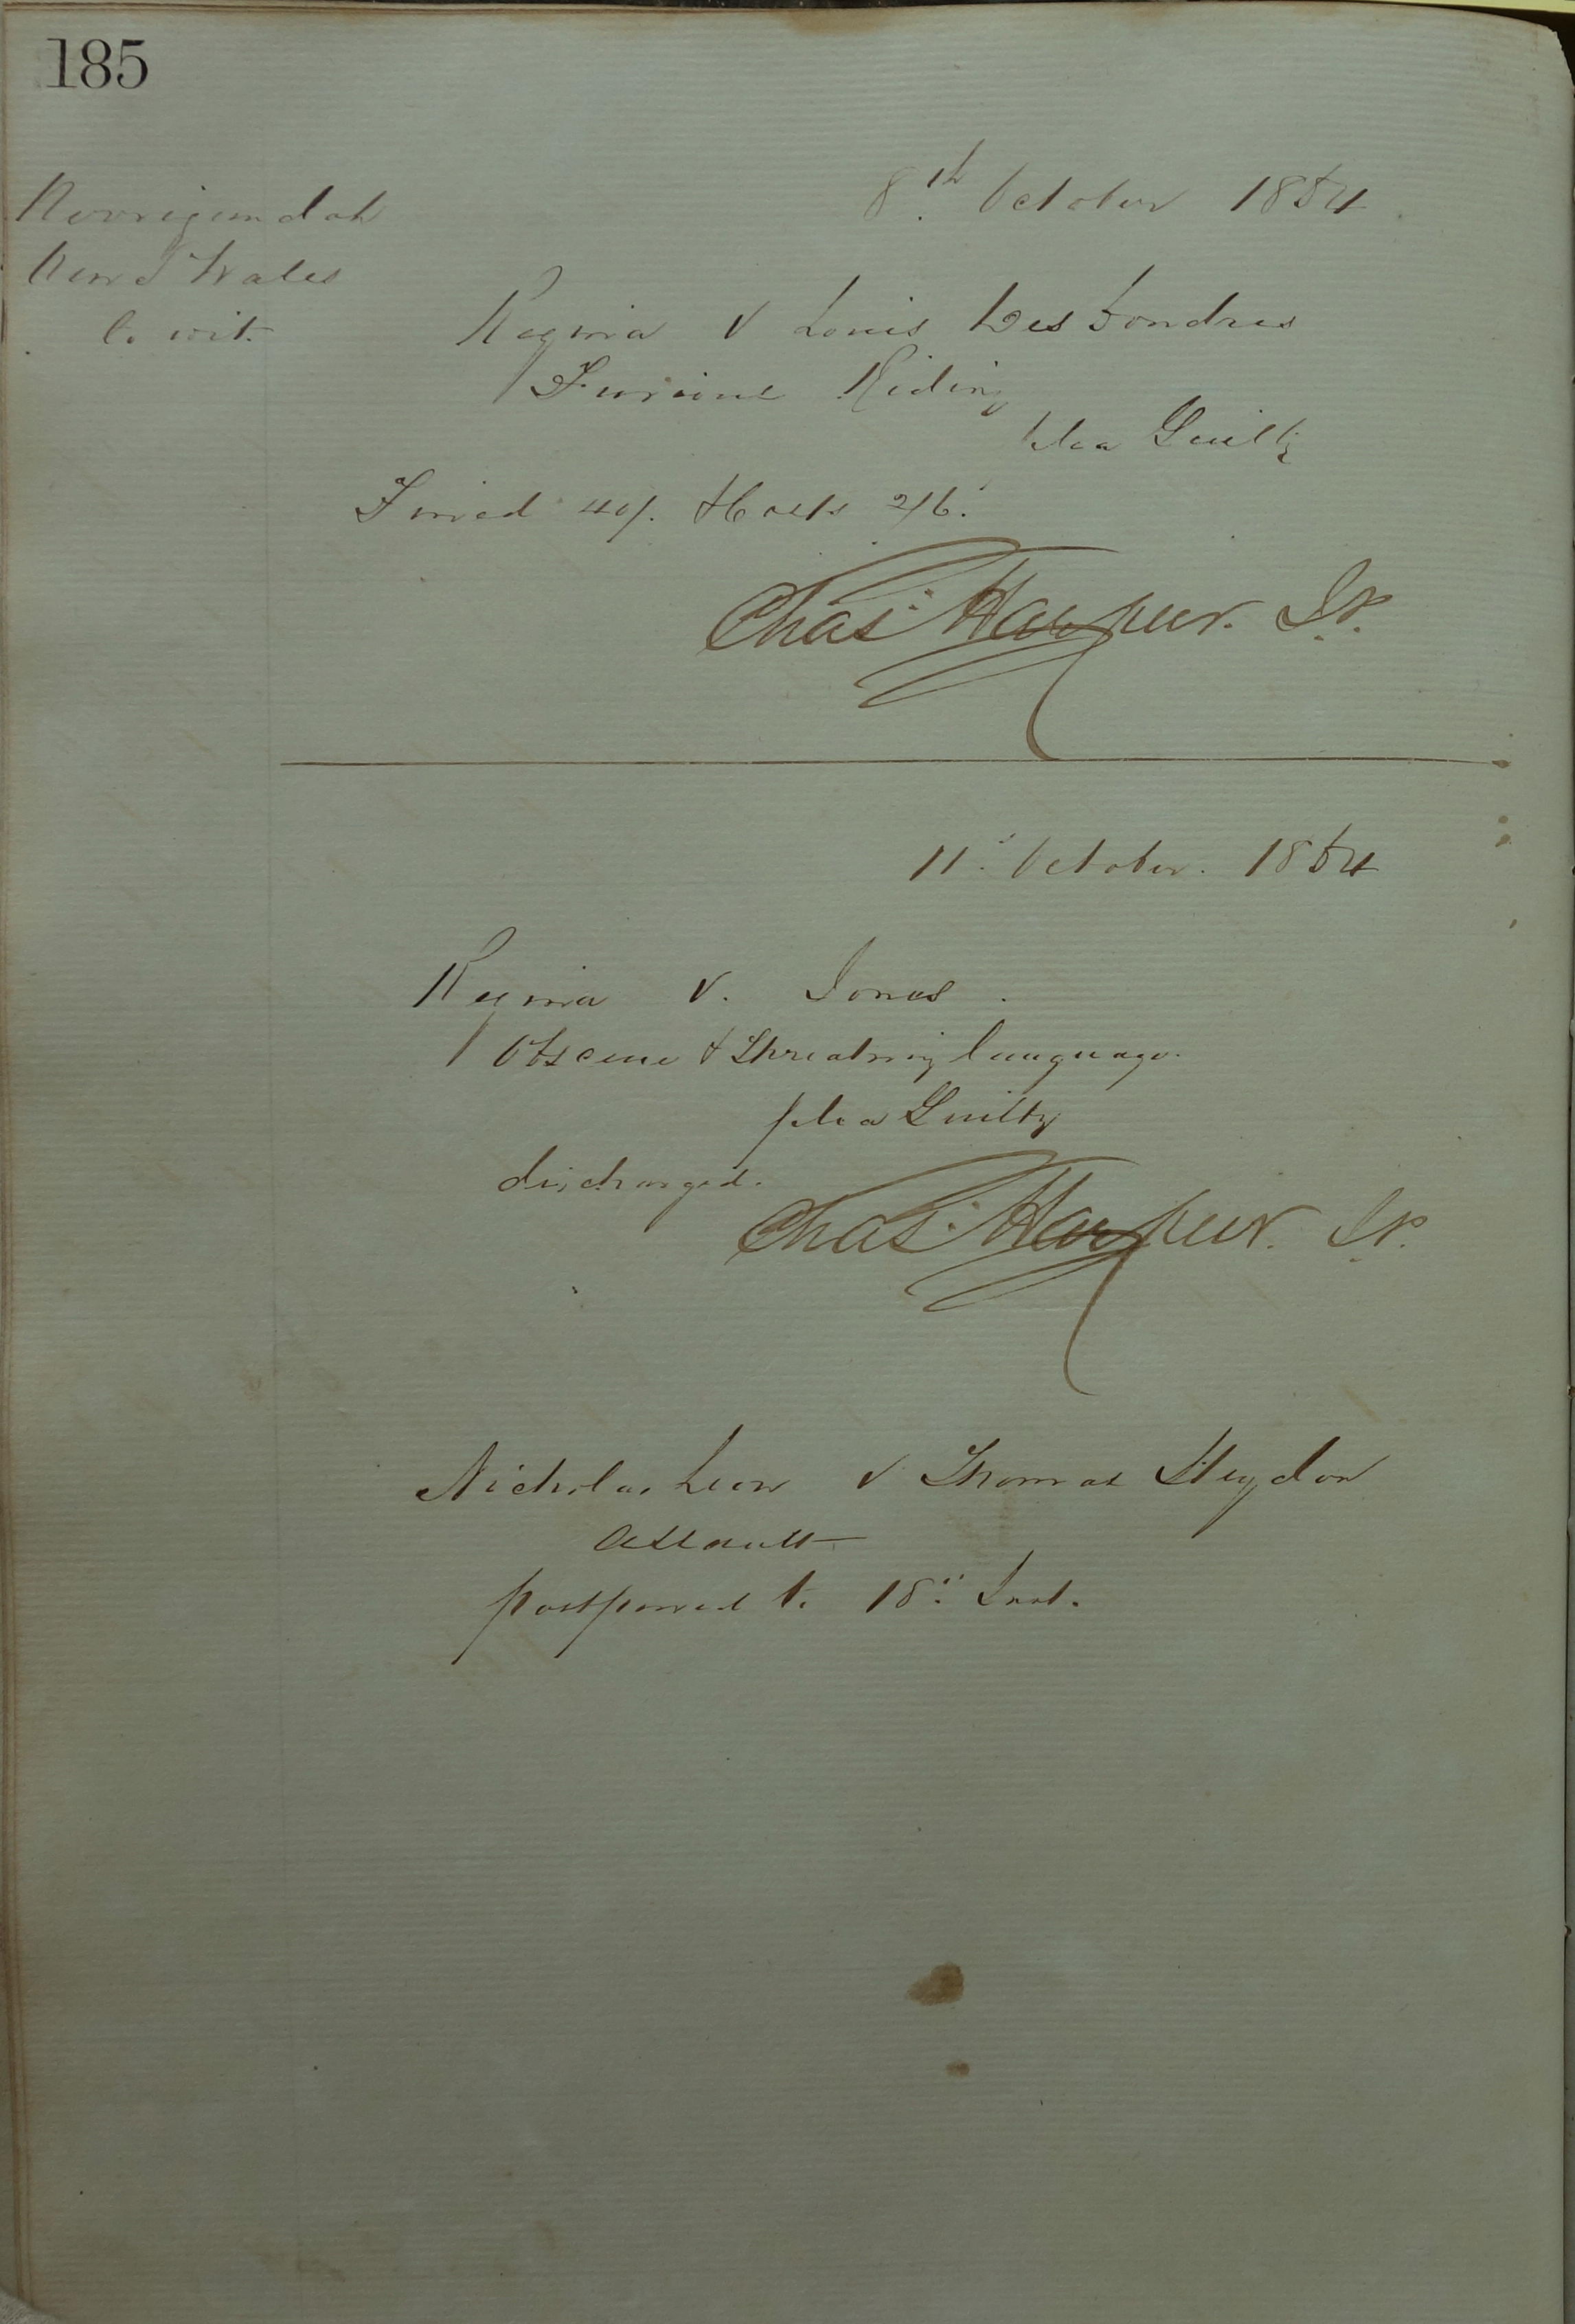 185
8th October 1864
Nerrigundah
New S Wales
to wit.
Regina v Louis Des
Furious Riding
plea Guilty
Fined 40/. & Costs 2/6.
Chas. Harpur. J.P.
11. October. 1864
Regina v. Jones.
Obscene & Threatning language.
plea Guilty
discharged.
Chas. Harpur. J.P.
Nicholas v Thomas
Assault
postponed to 18th Inst.